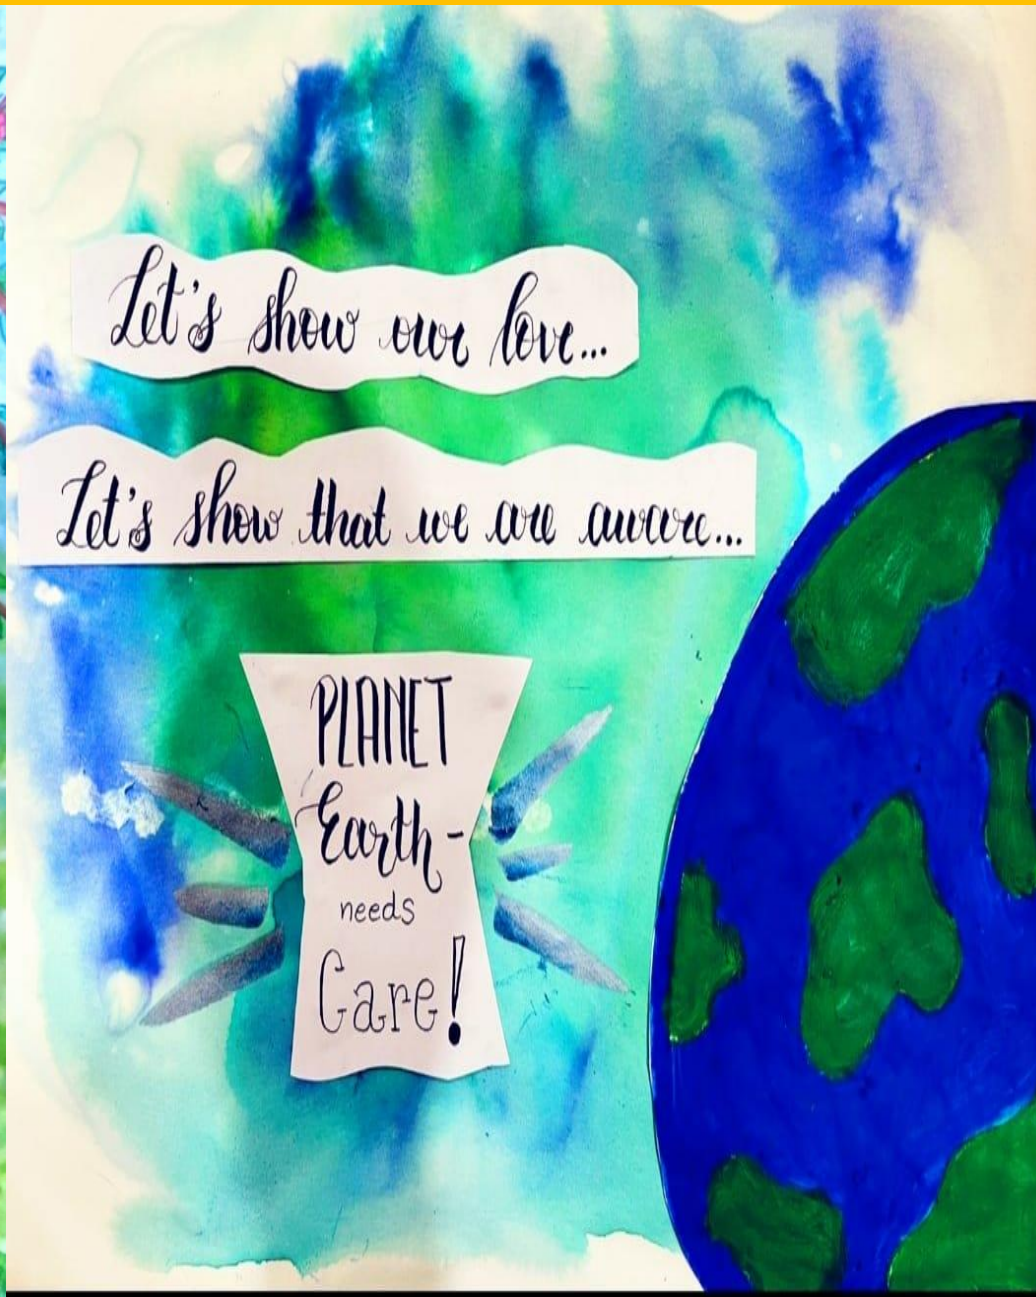 Let's show our love...
Let's show that we are aware...
PLANET
Earth-
needs
Care!